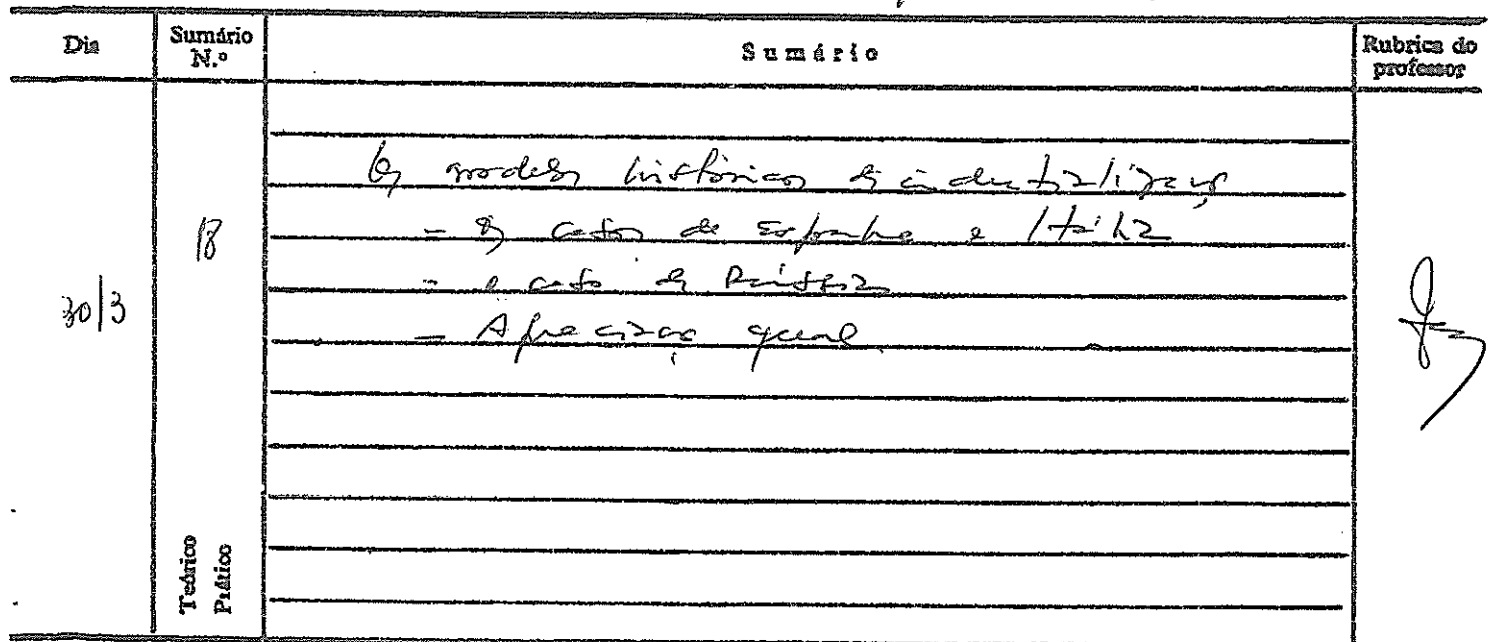 Dia Sumário N.º Sumário Rubrica do professor
30/3 18
Os modelos históricos de industrialização
- Os casos de Espanha e Itália
- o caso da Rússia
- Apreciação geral
Teórico
Prático